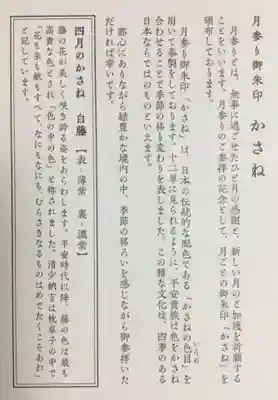 月参り御朱印　かさね
月参りとは、無事に過ごせたひと月の感謝と、新しい月のご加護を祈願する
ことをいいます。月参りのご参拝の記念として、月ごとの御朱印「かさね」を
頒布しております。
月参り御朱印「かさね」は、日本の伝統的な配色である「かさねの色目」を
いろめ
用いて奉製をしております。十二単に見られるように、平安貴族は色をかさね
合わせることで季節の移り変わりを表しました。この雅な文化は、四季のある
日本ならではのものといえます。
都心にありながら緑豊かな境内の中、季節の移ろいを感じながら御参拝いた
だければ幸いです。
四月のかさね　白藤【表‐薄紫　裏‐濃紫】
藤の花が美しく咲き誇る姿をあらわします。平安時代以降、藤の色は最も
高貴な色とされ「色の中の色」と称されました。清少納言は枕草子の中で
「花も糸も紙もすべて、なにもなにも、むらさきなるものはめでたくこそあれ」
と記しています。